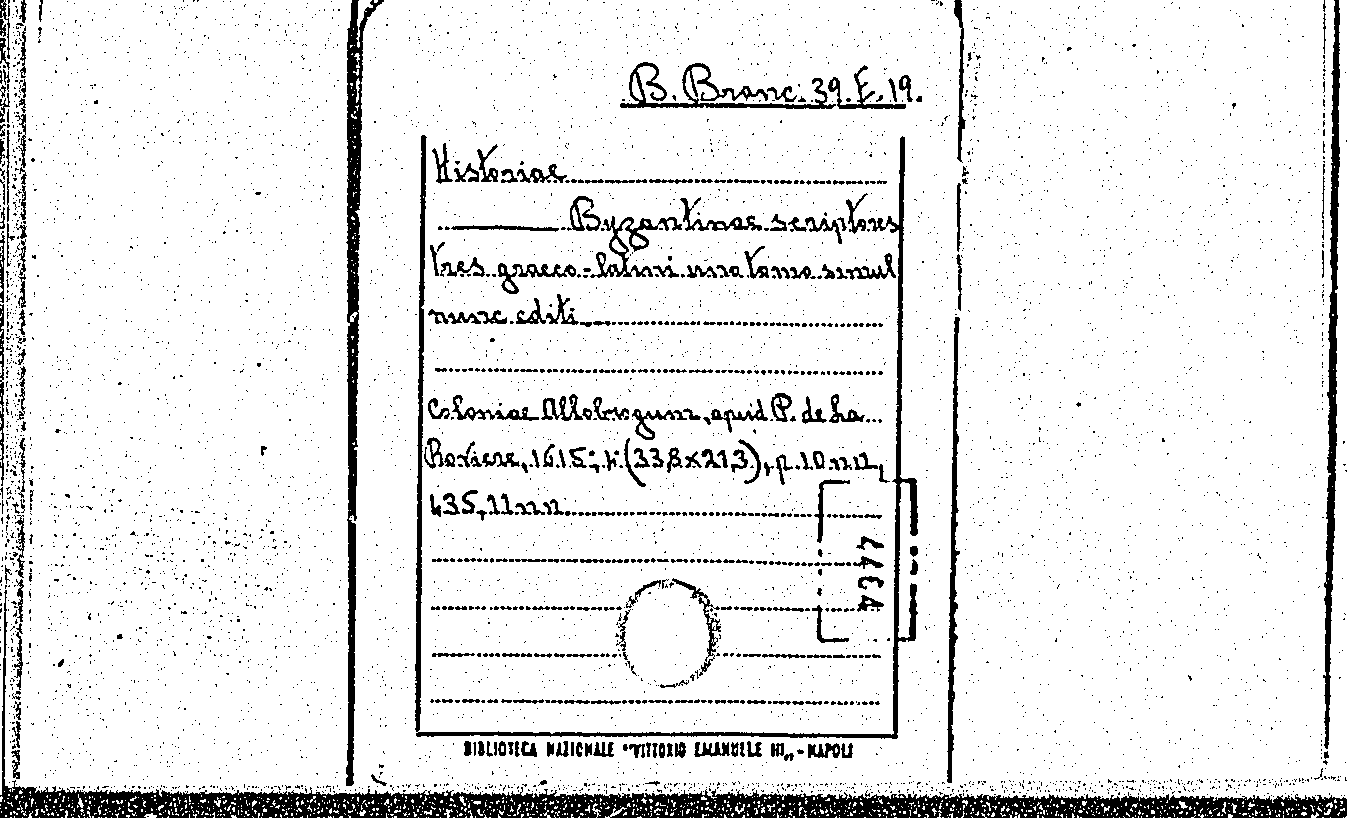 B. Branc. 39. E. 19.
Historiae
Byzantinae scriptores
tres graeco-latini uno tomo simul
nunc editi
Coloniae Allobrogum, apud P. de la
Roviere, 1615; 4° (33,8x21,3), p. 10 nn,
435, 11 nn.
BIBLIOTECA NAZIONALE "VITTORIO EMANUELE III„ - NAPOLI